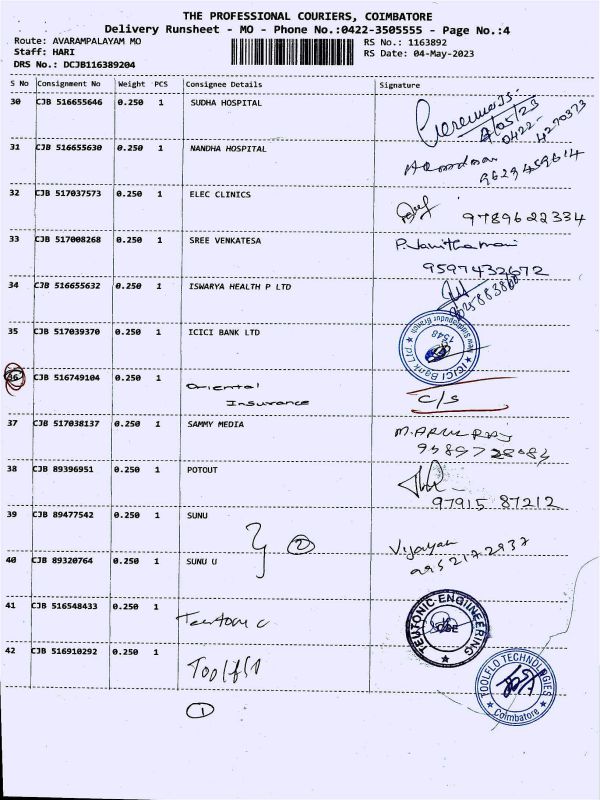 THE PROFESSIONAL COURIERS, COIMBATORE
Delivery Runsheet - MO - Phone No.:0422-3505555 - Page No.:4
Route: AVARAMPALAYAM MO RS No.: 1163892
Staff: HARI RS Date: 04-May-2023
DRS No.: DCJB116389204
S No Consignment No Weight PCS Consignee Details Signature
30 CJB 516655646 0.250 1 SUDHA HOSPITAL
0422-4270373
31 CJB 516655630 0.250 1 NANDHA HOSPITAL
9629459614
32 CJB 517037573 0.250 1 ELEC CLINICS 9789622334
33 CJB 517008268 0.250 1 SREE VENKATESA
9597432672
34 CJB 516655632 0.250 1 ISWARYA HEALTH P LTD
35 CJB 517039370 0.250 1 ICICI BANK LTD
ICICI Bank Ltd New Siddhapudur Branch 1348
CJB 516749104 0.250 1 Oriental Insurance C/S
37 CJB 517038137 0.250 1 SAMMY MEDIA M. ARUL RAJ
38 CJB 89396951 0.250 1 POTOUT
97915 87212
39 CJB 89477542 0.250 1 SUNU
2
40 CJB 89320764 0.250 1 SUNU U Vijayan
9952172937
41 CJB 516548433 0.250 1 Teutonic
TEUTONIC ENGINEERING
42 CJB 516910292 0.250 1 Toolflo
TOOLFLO TECHNOLOGIES Coimbatore
1